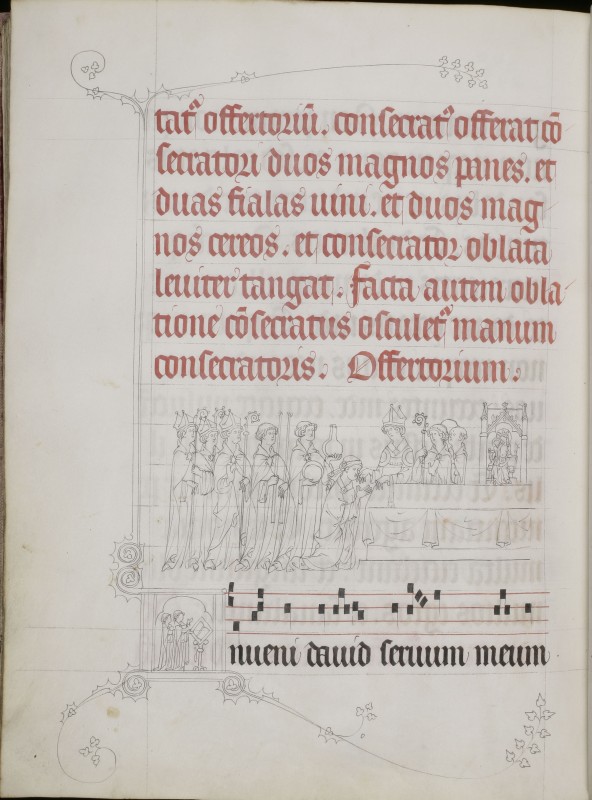 tatꝰ offertoriū. consecratꝰ offerat cō
secratori duos magnos panes. et
duas fialas uini. et duos mag
nos cereos. et consecrator oblata
leuiter tangat. Facta autem obla
tione cōsecratus osculetꝰ manum
consecratoris. Offertorium.
nueni dauid seruum meum